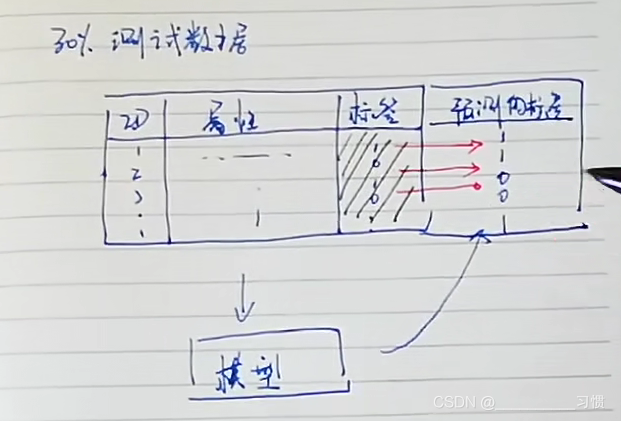 30% 测试数据
ID 属性 标签 预测的标签
1 1 1
2 0 1
3 1 0
0 0
模型
CSDN @ 习惯